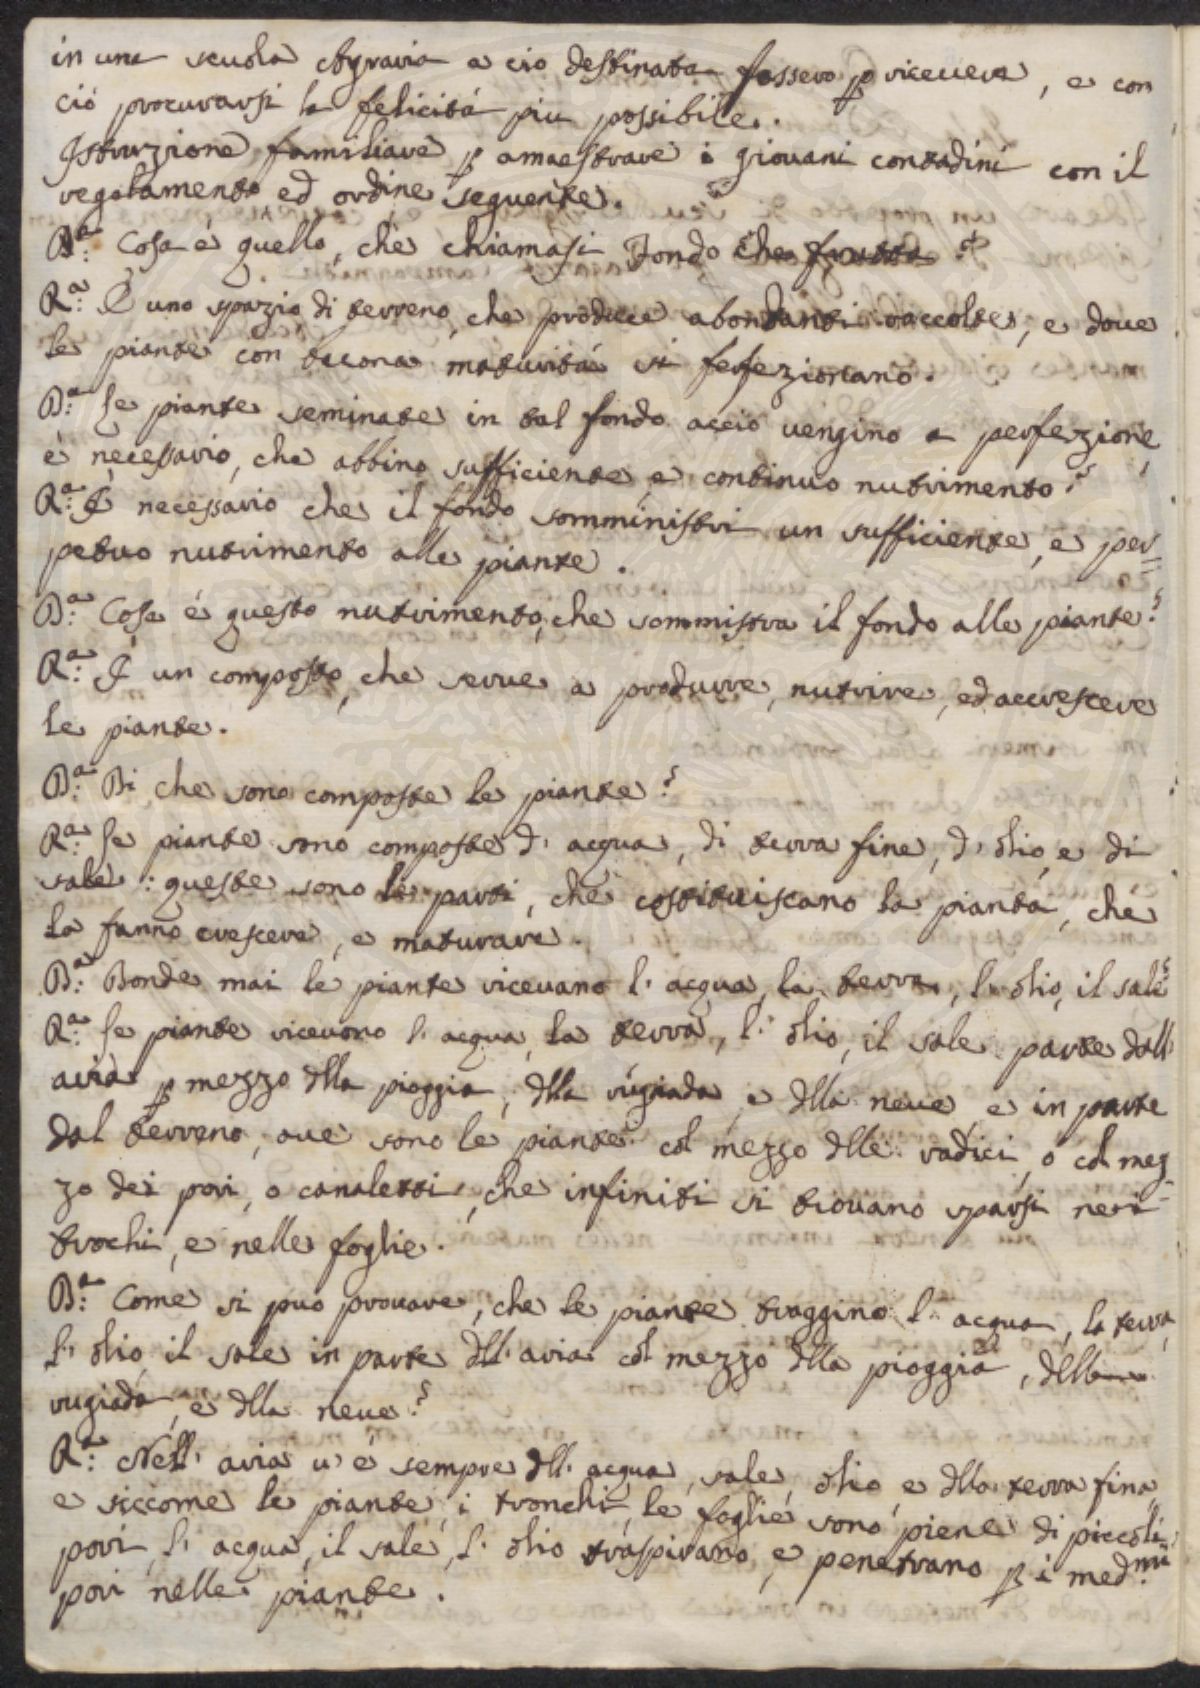 in una scuola Agraria a ciò destinata fossero p ricevere, e con
ciò procurarsi la felicitá piu possibile.
Istruzione familiare p amaestrare i giovani contadini con il
regolamento ed ordine seguente.
Da: Cosa é quello, che chiamasi Fondo che frutta?
Ra: É uno spazio di terreno, che produce abondanti raccolte, e dove
le piante con buona maturitá si fefezionano.
Da: Le piante seminate in tal fondo acciò venghino a perfezione,
è necessario, che abbino sufficiente, e continuo nutrimento?
Ra: É necessario che il fondo somministri un sufficiente, e per=
petuo nutrimento alle piante.
Da: Cosa é questo nutrimento, che sommistra il fondo alle piante?
Ra: É un composto, che serve a produrre, nutrire, ed accrescere
le piante.
Da: Di che sono composte le piante?
Ra: Le piante sono composte d' acqua, di terra fine, d' olio, e di
sale: queste sono le parti, che costituiscano la pianta, che
la fanno crescere, e maturare.
Da: Donde mai le piante ricevano l' acqua, la terra, l' olio, il sale?
Ra: Le piante ricevono l' acqua, la terra, l' olio, il sale parte dall'
aria p mezzo dlla pioggia, dlla rugiada, e dlla neve, e in parte
dal terreno, ove sono le piante col mezzo dlle radici, o col mez=
zo dei pori, o canaletti, che infiniti si trovano sparsi nei
trochi, e nelle foglie.
Da: Come si puo provare, che le piante traggino l' acqua, la terra,
l' olio, il sale in parte dll' aria col mezzo dlla pioggia, dlla
rugiada, e dlla neve?
Ra: Nell' aria v' é sempre dll' acqua, sale, olio, e dlla terra fina,
e siccome le piante, i tronchi, le foglie sono piene di piccoli
pori, l' acqua, il sale, l' olio traspirano, e penetrano p i med.mi
pori nelle piante.